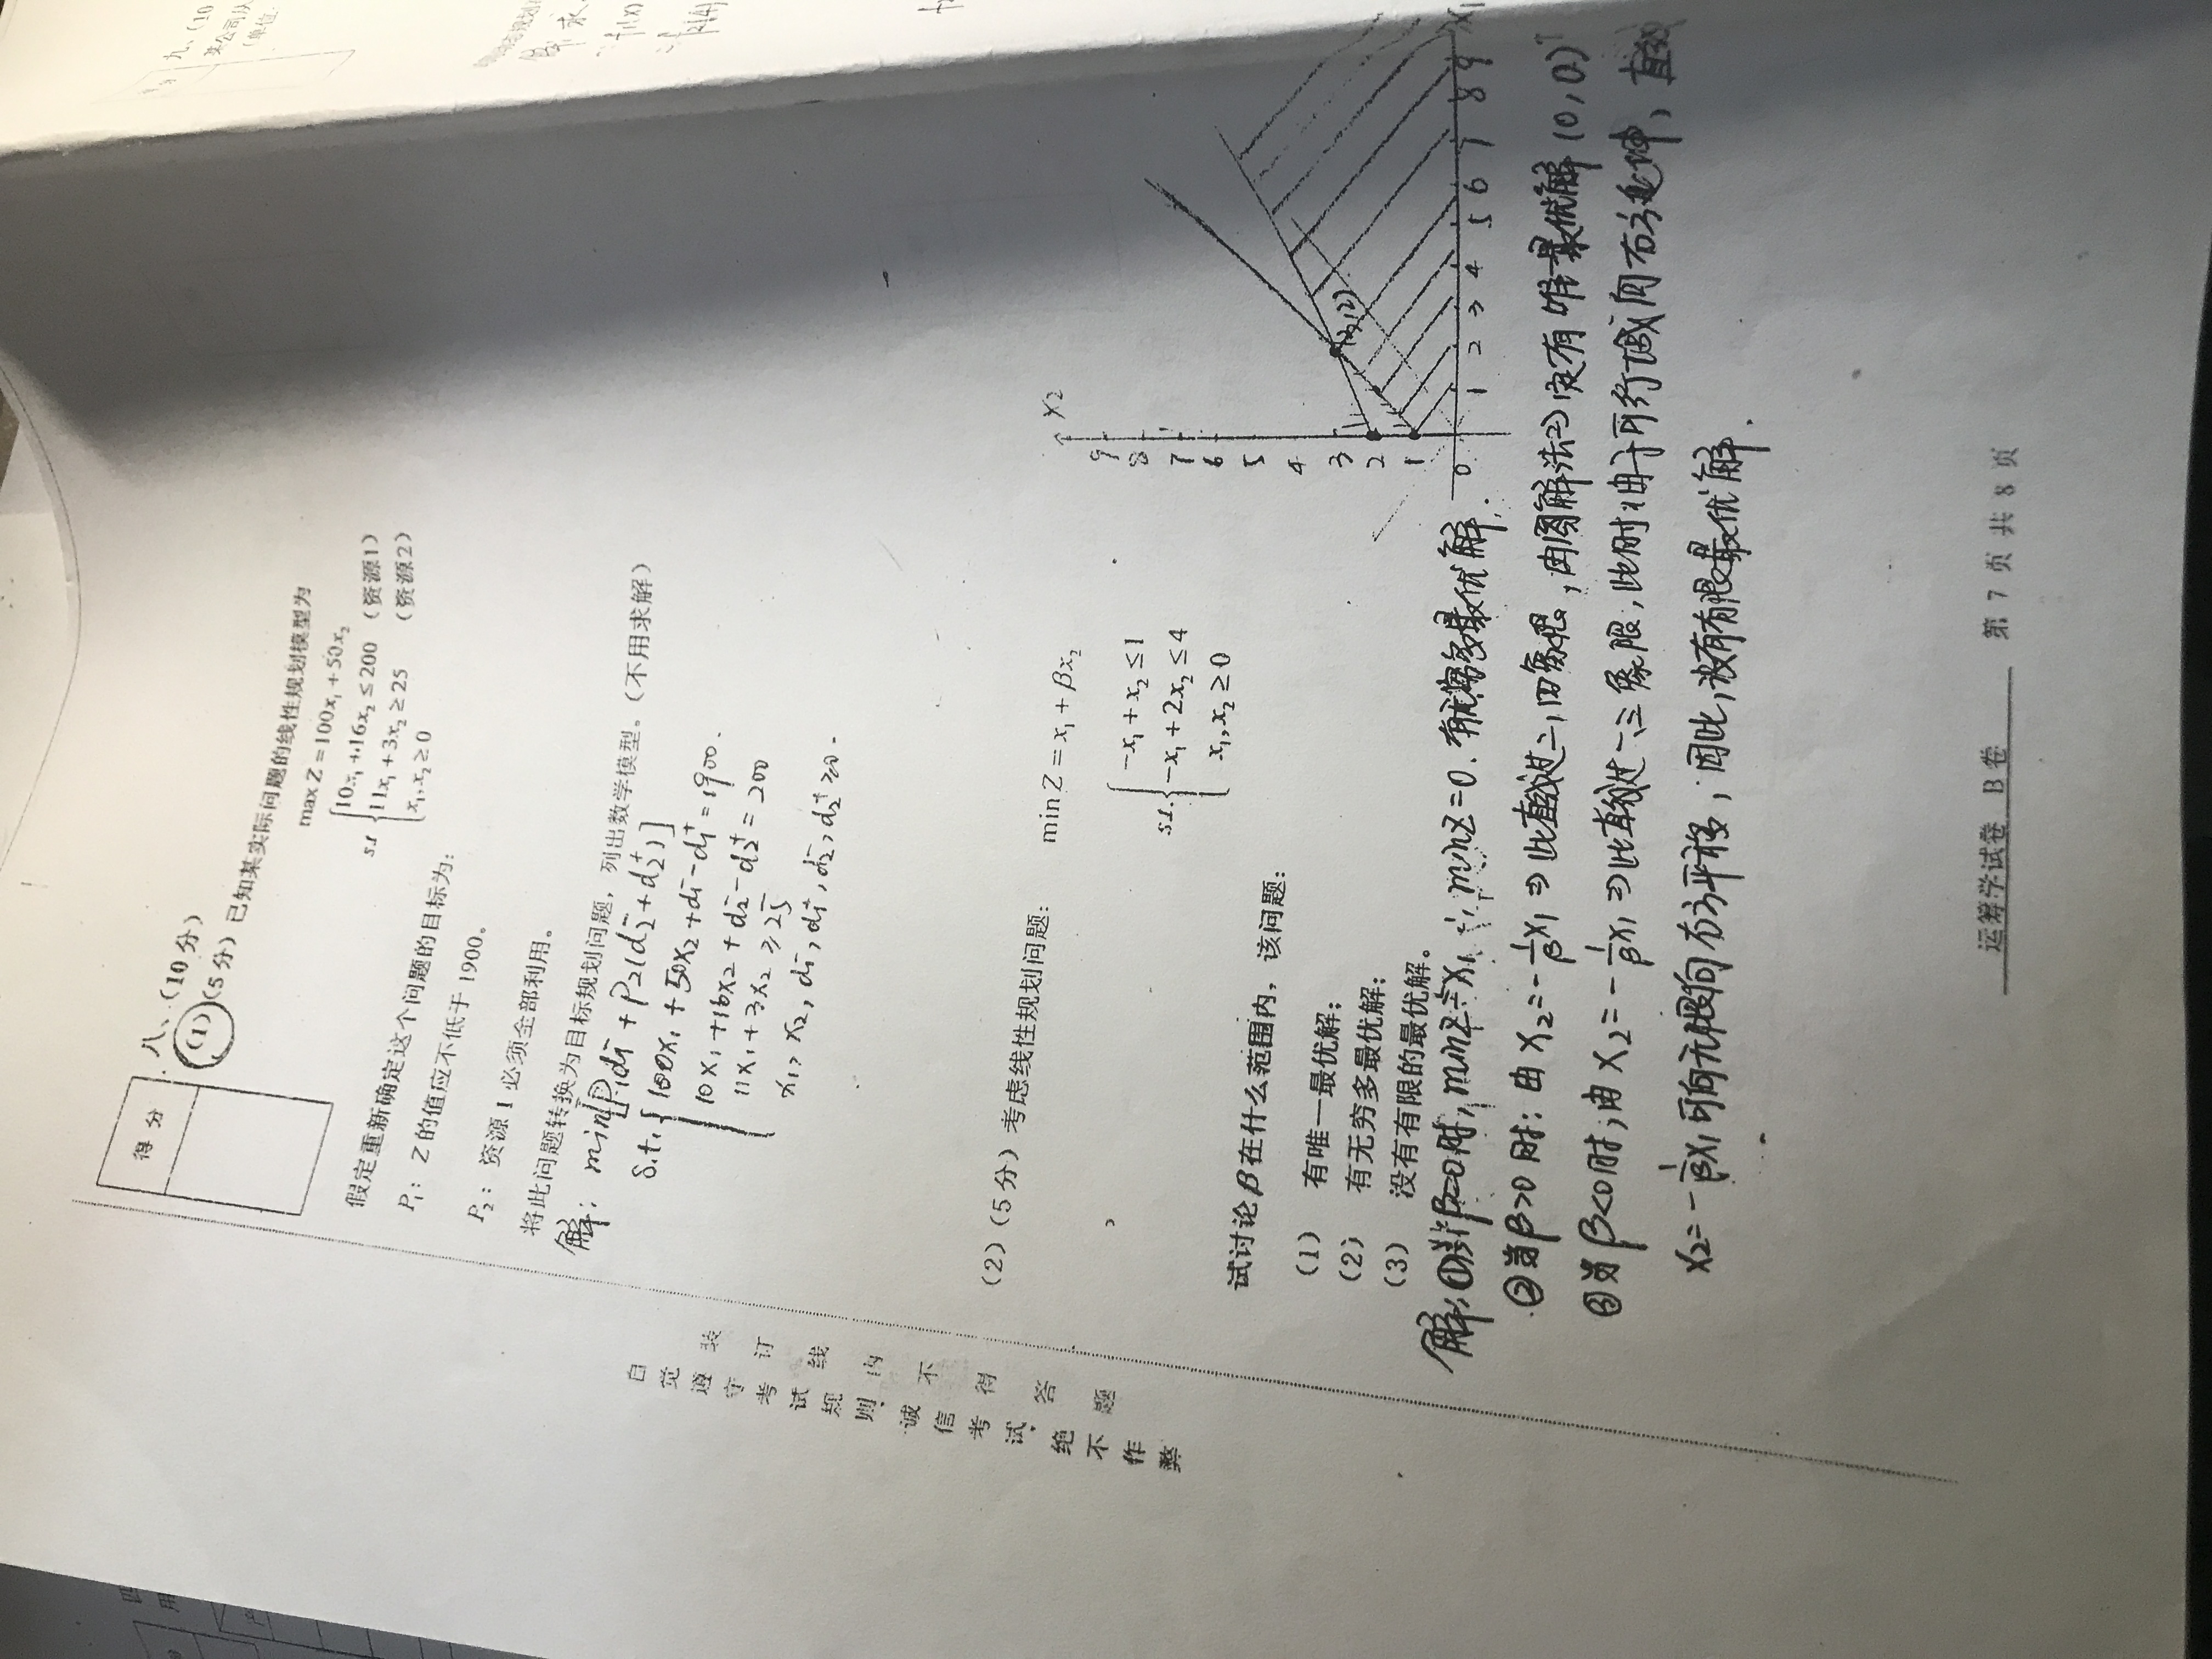 得分
八、（10分）
（1）（5分）已知某实际问题的线性规划模型为
max Z = 100x₁ + 50x₂
s.t. 10x₁ + 16x₂ ≤ 200 （资源1）
11x₁ + 3x₂ ≥ 25 （资源2）
x₁, x₂ ≥ 0
假定重新确定这个问题的目标为：
P₁： Z的值应不低于1900。
P₂： 资源1必须全部利用。
将此问题转换为目标规划问题，列出数学模型。（不用求解）
解： min[P₁d₁⁻ + P₂(d₂⁻ + d₂⁺)]
s.t. 100x₁ + 50x₂ + d₁⁻ - d₁⁺ = 1900.
10x₁ + 16x₂ + d₂⁻ - d₂⁺ = 200
11x₁ + 3x₂ ≥ 25
x₁, x₂, d₁⁻, d₁⁺, d₂⁻, d₂⁺ ≥ 0.
自觉遵守考试规则、诚信考试、绝不作弊
装订线内不得答题
（2）（5分）考虑线性规划问题：
min Z = x₁ + βx₂
s.t. -x₁ + x₂ ≤ 1
-x₁ + 2x₂ ≤ 4
x₁, x₂ ≥ 0
试讨论β在什么范围内，该问题：
（1） 有唯一最优解；
（2） 有无穷多最优解；
（3） 没有有限的最优解。
x₂
9
8
7
6
5
4
3
2
1
0 1 2 3 4 5 6 7 8 9 x₁
解：①当β=0时，minZ=x₁ ∴ minZ=0. 有无穷多最优解.
②当β>0时：由x₂=-1/β x₁ ⇒ 此直线过二，四象限，由图解法⇒定有唯一最优解(0,0)ᵀ
③当β<0时，由x₂=-1/β x₁ ⇒ 此直线过一、三象限，此时由于可行域向右方延伸，直线
x₂=-1/β x₁可向无限向右方平移，因此，没有有限最优解.
运筹学试卷 B卷 第7页共8页
九、（10
某公司从
（单位